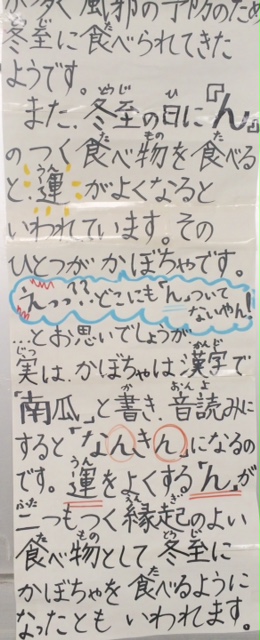 が多く風邪の予防のため
冬至に食べられてきた
ようです。
また、冬至の日に『ん』
のつく食べ物を食べる
と運がよくなると
いわれています。その
ひとつがかぼちゃです。
えっっ!?どこにも「ん」ついて
ないやん!
…とお思いでしょうが
実は、かぼちゃは漢字で
「南瓜」と書き、音読みに
すると「なんきん」になるの
です。運をよくする「ん」が
二つもつく縁起のよい
食べ物として冬至に
かぼちゃを食べるように
なったともいわれます。